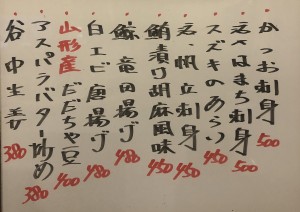 かつお刺身 500
天然はまち刺身 500
スズキのあらい 450
天然帆立刺身 450
鮪漬け胡麻風味 450
鯨竜田揚げ 480
白エビ唐揚げ 480
山形産だだちゃ豆 400
アスパラバター炒め 380
谷中生姜 380